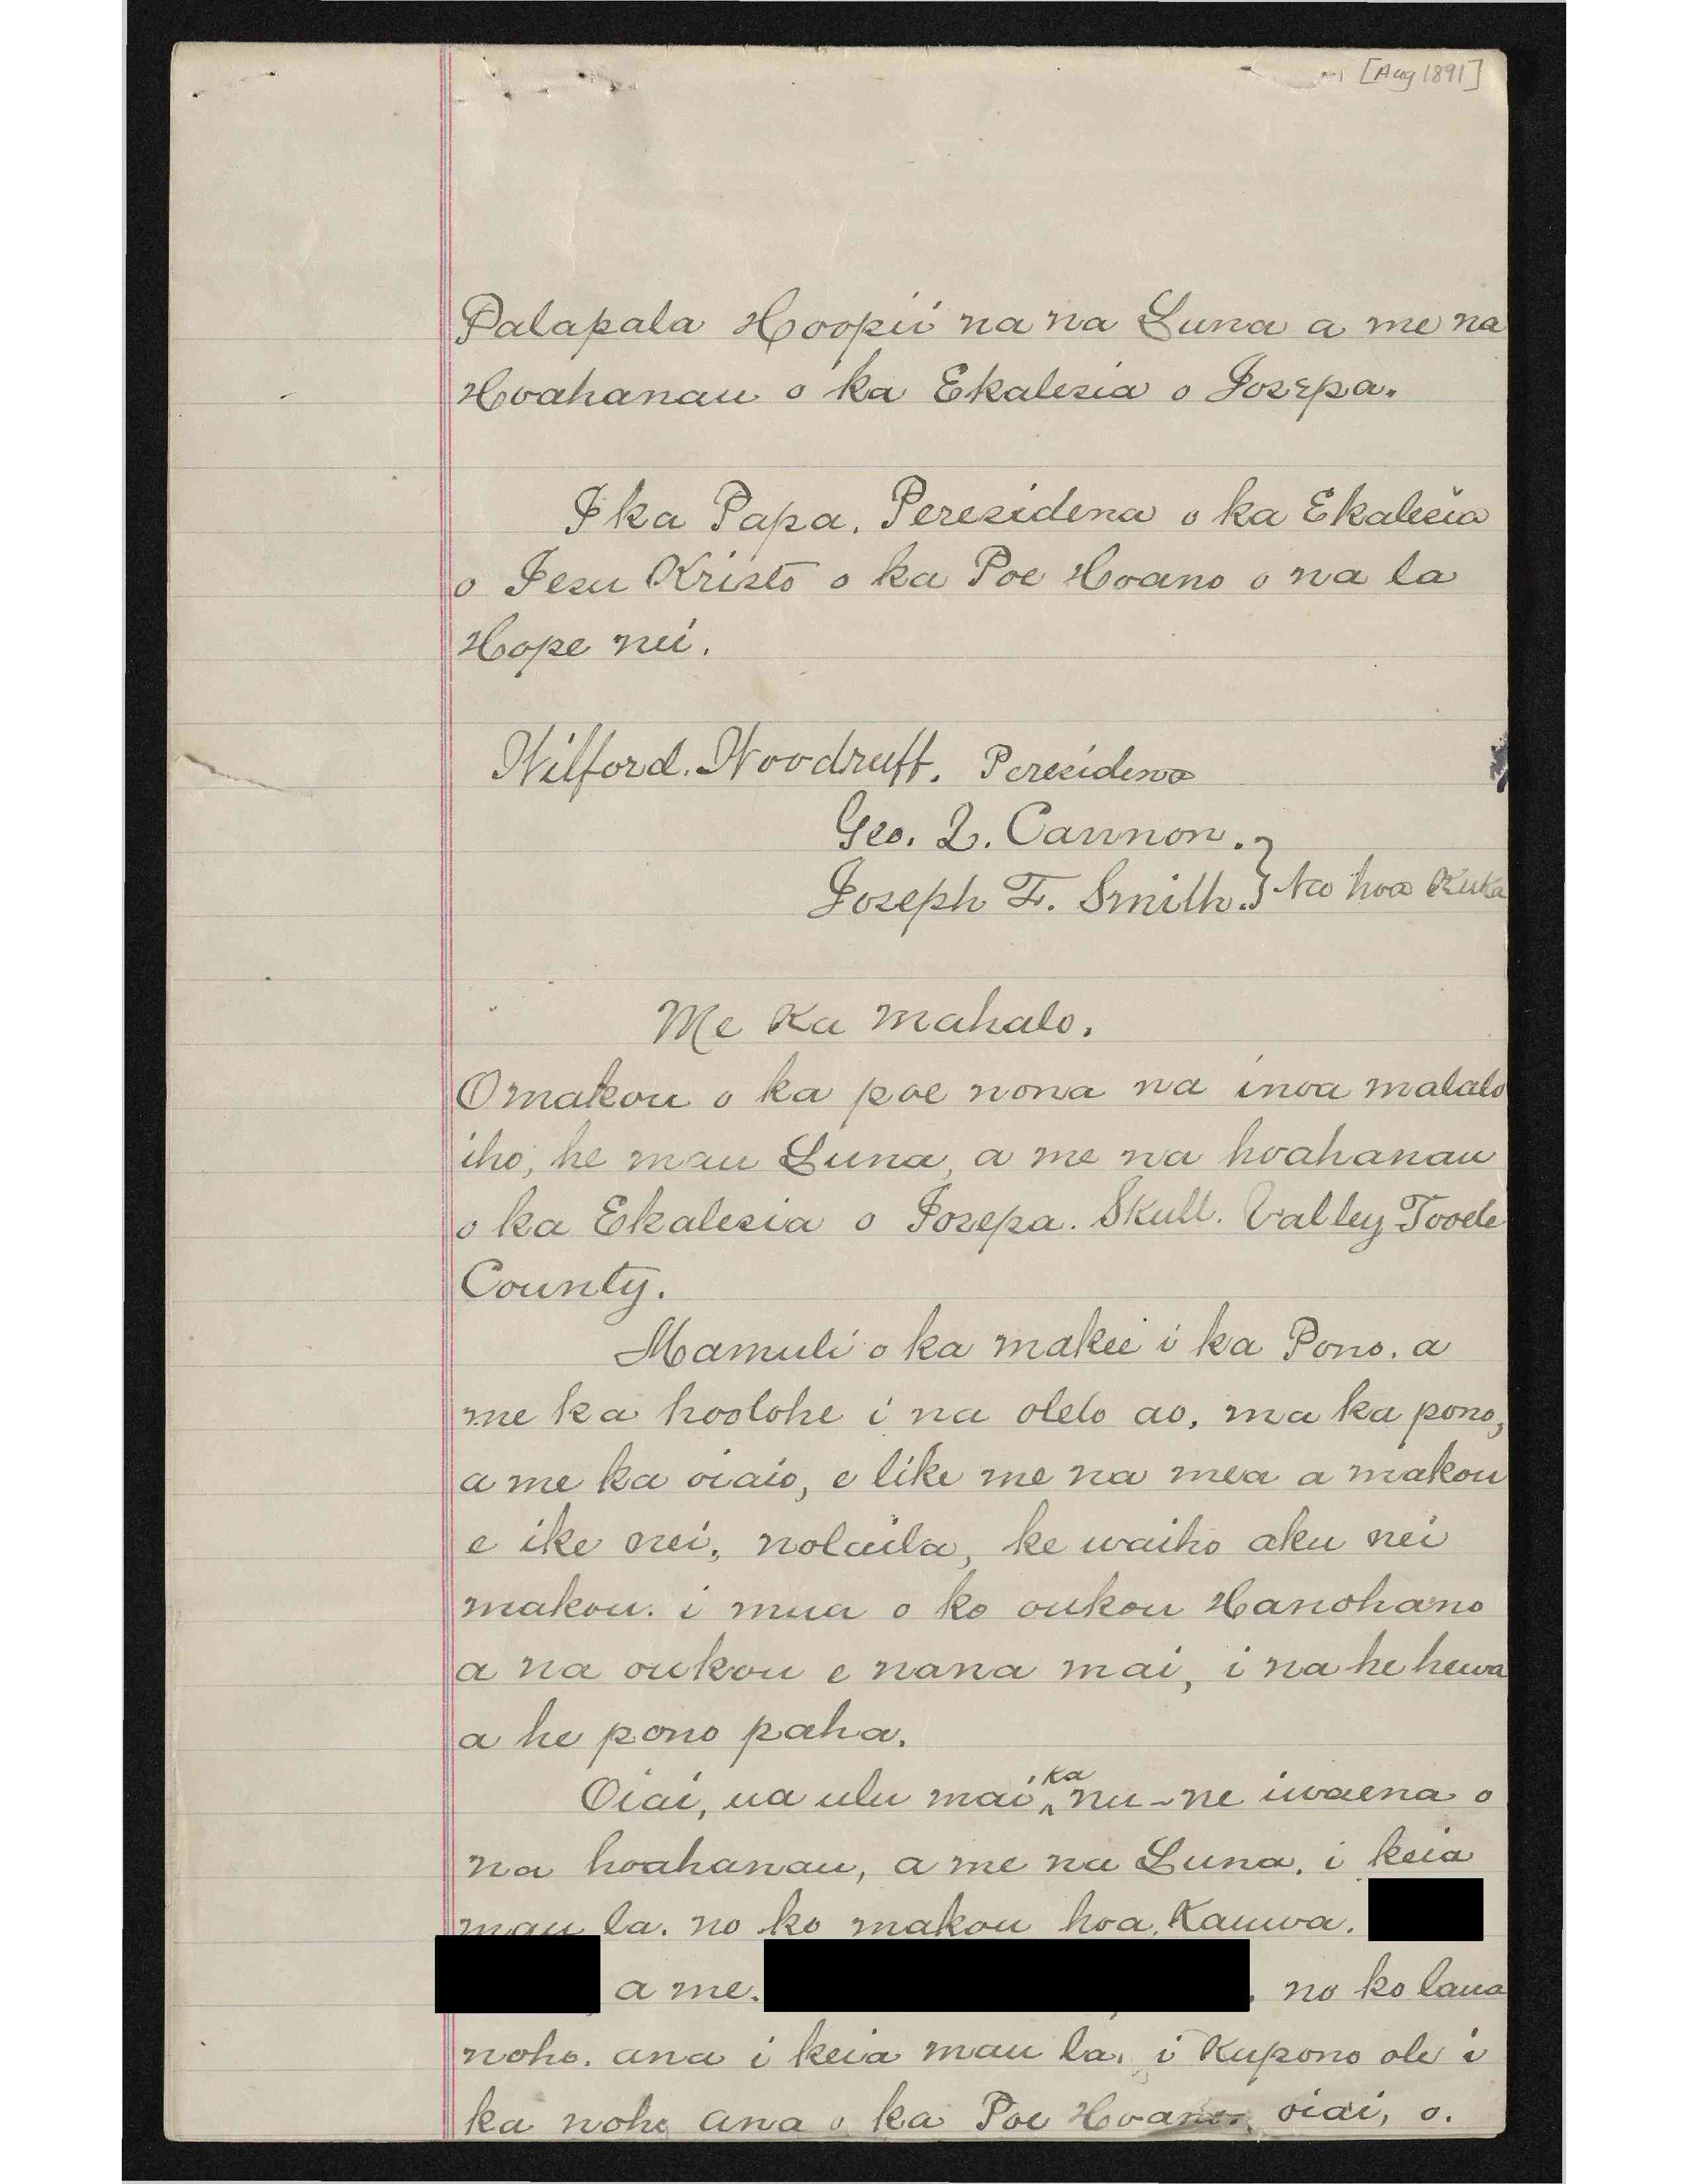 [Aug 1891]
Palapala Hoopii na na Luna a me na
Hoahanau o ka Ekalesia o Iosepa.
I ka Papa. Peresidena o ka Ekalesia
o Iesu Kristo o ka Poe Hoano o na la
Hope nei.
Wilford. Woodruff. Peresidena
Geo. Q. Cannon. }
Joseph F. Smith. } No hoa Kuka
Me Ka mahalo.
O makou o ka poe nona na inoa malalo
iho, he mau Luna, a me na hoahanau
o ka Ekalesia o Iosepa. Skull. Valley Tooele
County.
Mamuli o ka makee i ka Pono. a
me ka hoolohe i na olelo ao, ma ka pono,
a me ka oiaio, e like me na mea a makou
e ike nei, nolaila, ke waiho aku nei
makou. i mua o ko oukou Hanohano
a na oukou e nana mai, i na he hewa
a he pono paha.
Oiai, ua ulu mai, ka nu-ne iwaena o
na hoahanau, a me na Luna. i keia
mau la. no ko makou hoa. Kauwa.
a me. , no ko laua
noho. ana i keia mau la, i Kupono ole i
ka noho ana o ka Poe Hoano. oiai, o.